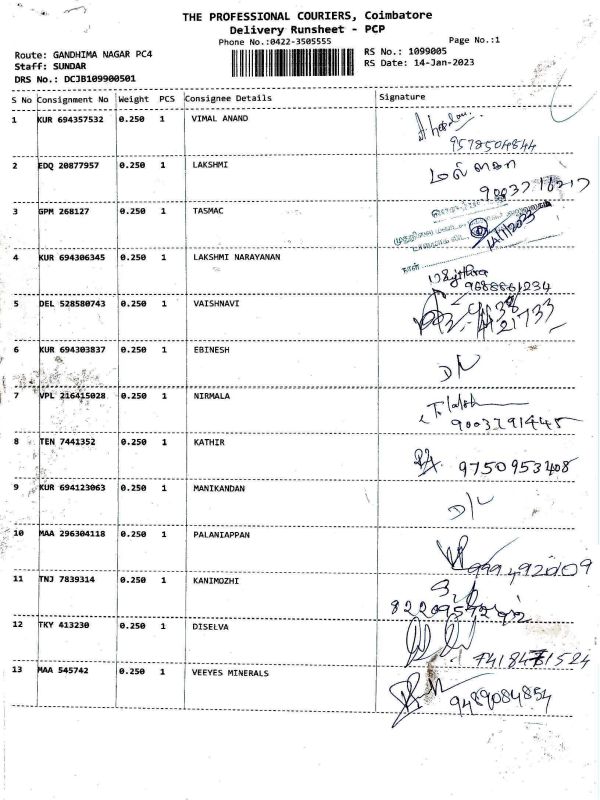 THE PROFESSIONAL COURIERS, Coimbatore
Delivery Runsheet - PCP
Phone No.:0422-3505555
Page No.:1
Route: GANDHIMA NAGAR PC4
RS No.: 1099005
Staff: SUNDAR
RS Date: 14-Jan-2023
DRS No.: DCJB109900501
S No Consignment No Weight PCS Consignee Details Signature
1 KUR 694357532 0.250 1 VIMAL ANAND
9578504844
2 EDQ 20877957 0.250 1 LAKSHMI
3 GPM 268127 0.250 1 TASMAC
14/1/2023
4 KUR 694306345 0.250 1 LAKSHMI NARAYANAN
9688861234
5 DEL 528580743 0.250 1 VAISHNAVI
6 KUR 694303837 0.250 1 EBINESH
7 VPL 216415028 0.250 1 NIRMALA
9003291445
8 TEN 7441352 0.250 1 KATHIR
9750953408
9 KUR 694123063 0.250 1 MANIKANDAN
D/L
10 MAA 296304118 0.250 1 PALANIAPPAN
11 TNJ 7839314 0.250 1 KANIMOZHI
12 TKY 413230 0.250 1 DISELVA
13 MAA 545742 0.250 1 VEEYES MINERALS
9489084854